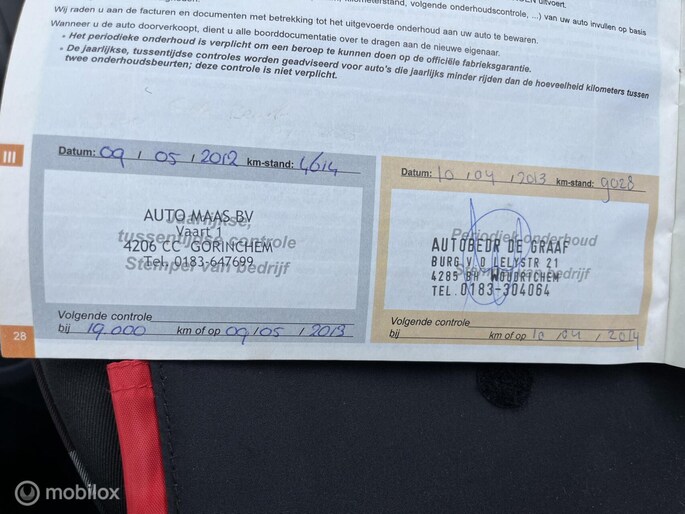 uitvoert.
kilometerstand, volgende onderhoudscontrole, ...) van uw auto invullen op basis
Wij raden u aan de facturen en documenten met betrekking tot het uitgevoerde onderhoud aan uw auto te bewaren.
Wanneer u de auto doorverkoopt, dient u alle boorddocumentatie over te dragen aan de nieuwe eigenaar.
• Het periodieke onderhoud is verplicht om een beroep te kunnen doen op de officiële fabrieksgarantie.
• De jaarlijkse, tussentijdse controles worden geadviseerd voor auto's die jaarlijks minder rijden dan de hoeveelheid kilometers tussen
twee onderhoudsbeurten; deze controle is niet verplicht.
III
Datum: 09 / 05 / 2012 km-stand: 4614
AUTO MAAS BV
Jaarlijkse,
Vaart 1
tussentijdse controle
4206 CC GORINCHEM
Stempel van bedrijf
Tel. 0183-647699
Volgende controle
bij 19.000 km of op 09 / 05 / 2013
28
Datum: 10 / 04 / 2013 km-stand: 9028
Periodiek onderhoud
AUTOBEDR DE GRAAF
BURG V D LELYSTR 21
Stempel van bedrijf
4285 BH WOUDRICHEM
TEL. 0183-304064
Volgende controle
bij km of op 10 / 04 / 2014
mobilox